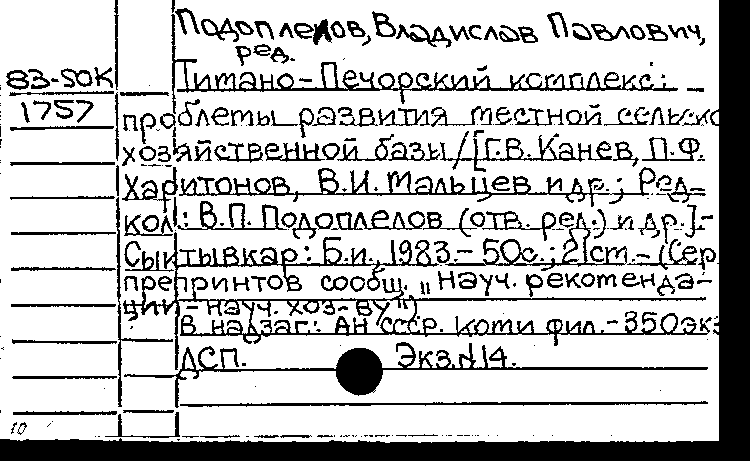 Подоплелов, Владислав Павлович,
ред.
83-50К
Титано-Печорский комплекс:
1757
проблемы развития местной сельско
хозяйственной базы/[Г.В. Канев, П.Ф.
Харитонов, В.И. Мальцев и др.; Ред-
кол.: В.П. Подоплелов (отв. ред.) и др.].-
Сыктывкар: Б.и., 1983.- 50с.; 21ст.- (Сер
препринтов сообщ. "Науч. рекоменда-
ции - науч. хоз-ву")
В надзаг.: АН СССР. Коми фил.- 350экз
ДСП. Экз.№14.
10